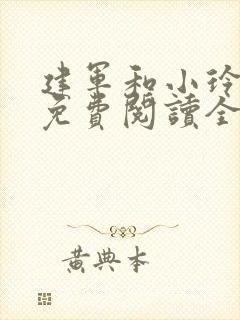 建軍和小玲
免費閱讀全
黃典本